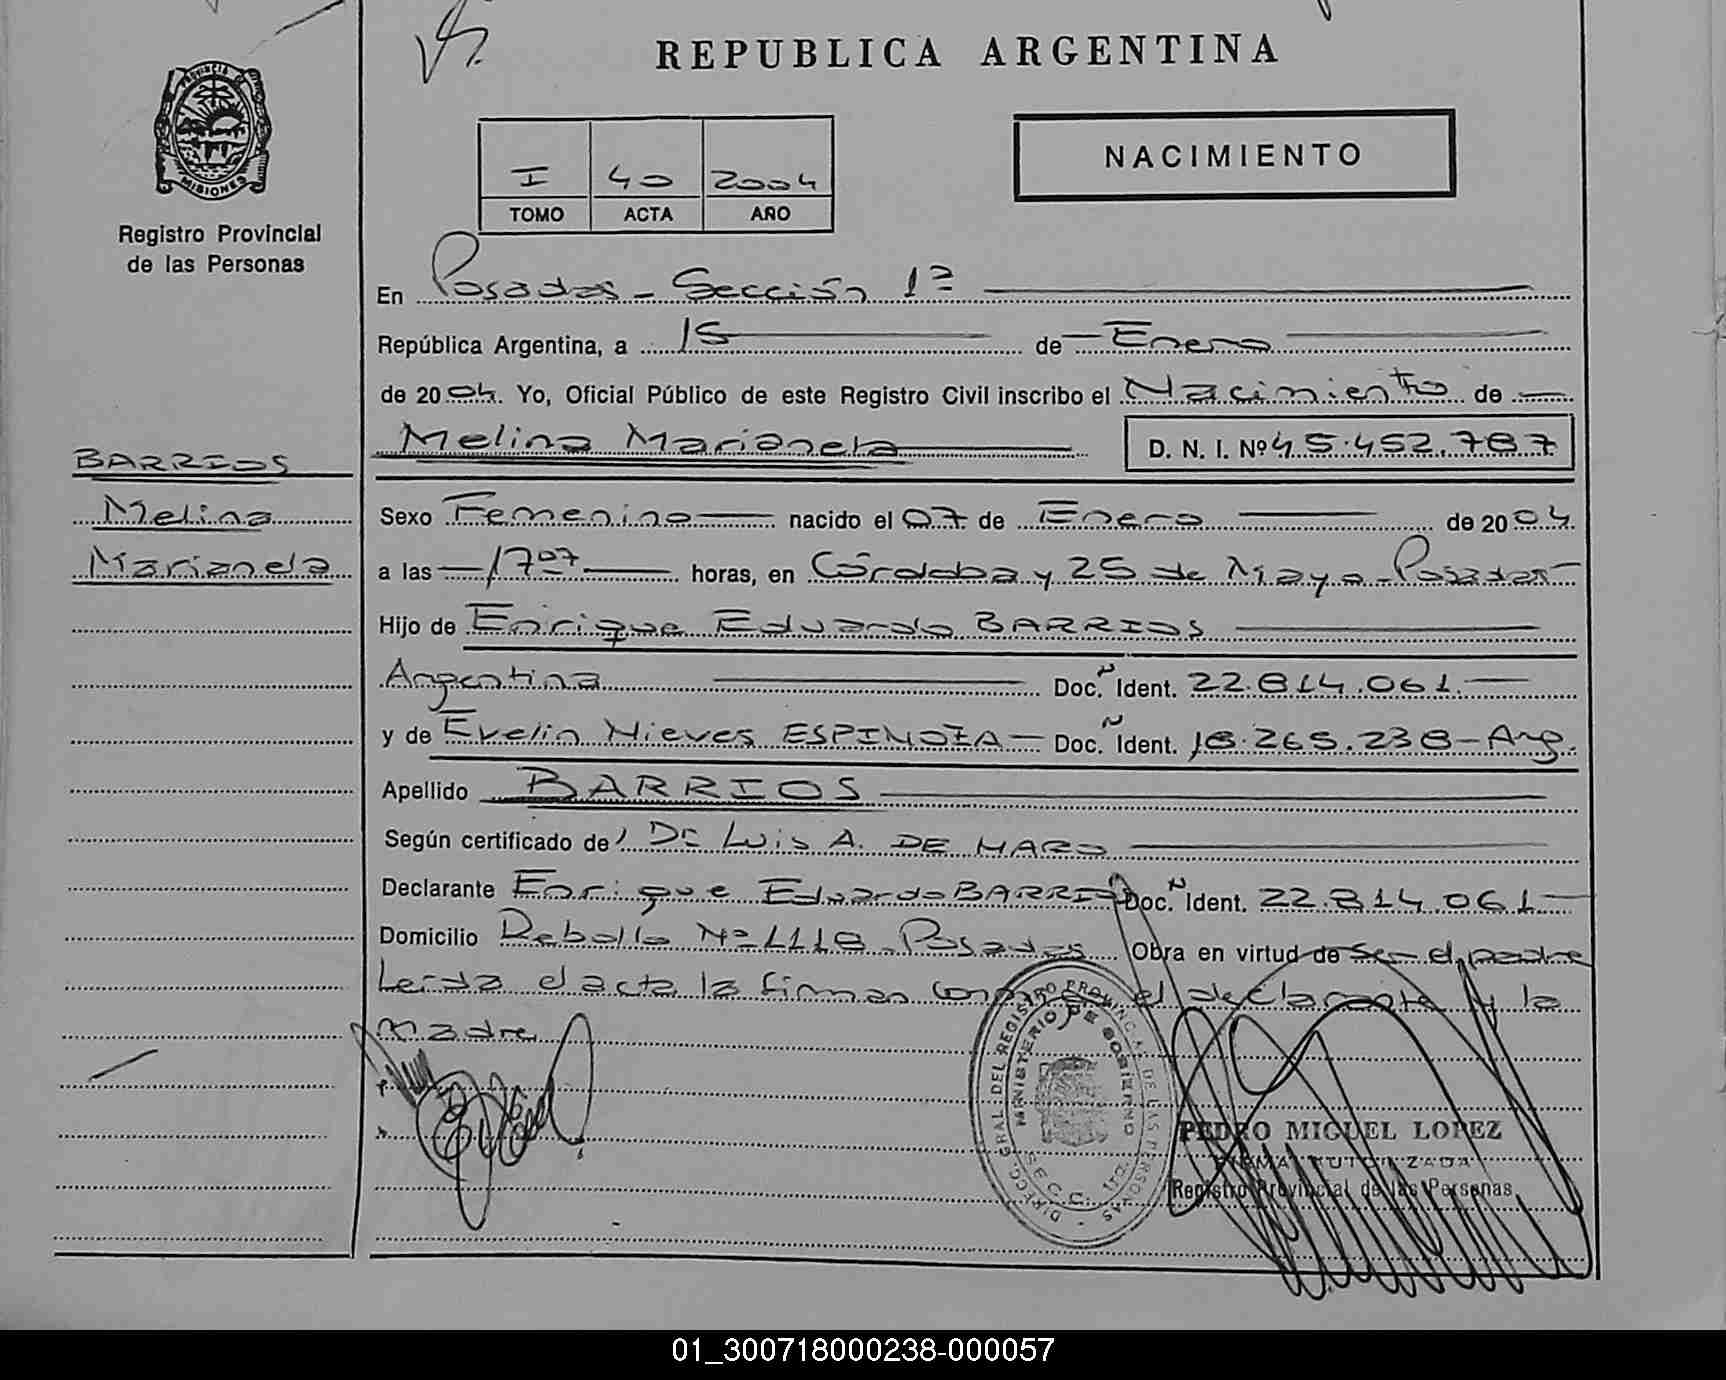 REPUBLICA ARGENTINA
PROVINCIA DE
MISIONES
Registro Provincial
de las Personas
I 40 2004
TOMO ACTA AÑO
NACIMIENTO
En Posadas - Sección 1ª
República Argentina, a 15 de Enero
de 2004. Yo, Oficial Público de este Registro Civil inscribo el Nacimiento de
Melina Marianela D. N. I. Nº 45.452.787
BARRIOS
Melina
Marianela
Sexo Femenino nacido el 07 de Enero de 2004.
a las 17 07 horas, en Córdoba y 25 de Mayo - Posadas
Hijo de Enrique Eduardo BARRIOS
Argentina Doc. Ñ Ident. 22.814.061.
y de Evelin Nieves ESPINOZA Doc. Ñ Ident. 18.265.238 - Arg.
Apellido BARRIOS
Según certificado de Dr Luis A. DE HARO
Declarante Enrique Eduardo BARRIOS Doc. Ñ Ident. 22.814.061
Domicilio Rebollo Nº 1118 - Posadas Obra en virtud de ser el padre
Leída el acta la firman el declarante y la
madre
DIRECC. GRAL. DEL REGISTRO PROVINCIAL DE LAS PERSONAS
MINISTERIO DE GOBIERNO
PEDRO MIGUEL LOPEZ
FIRMA AUTORIZADA
Registro Provincial de las Personas
01_300718000238-000057